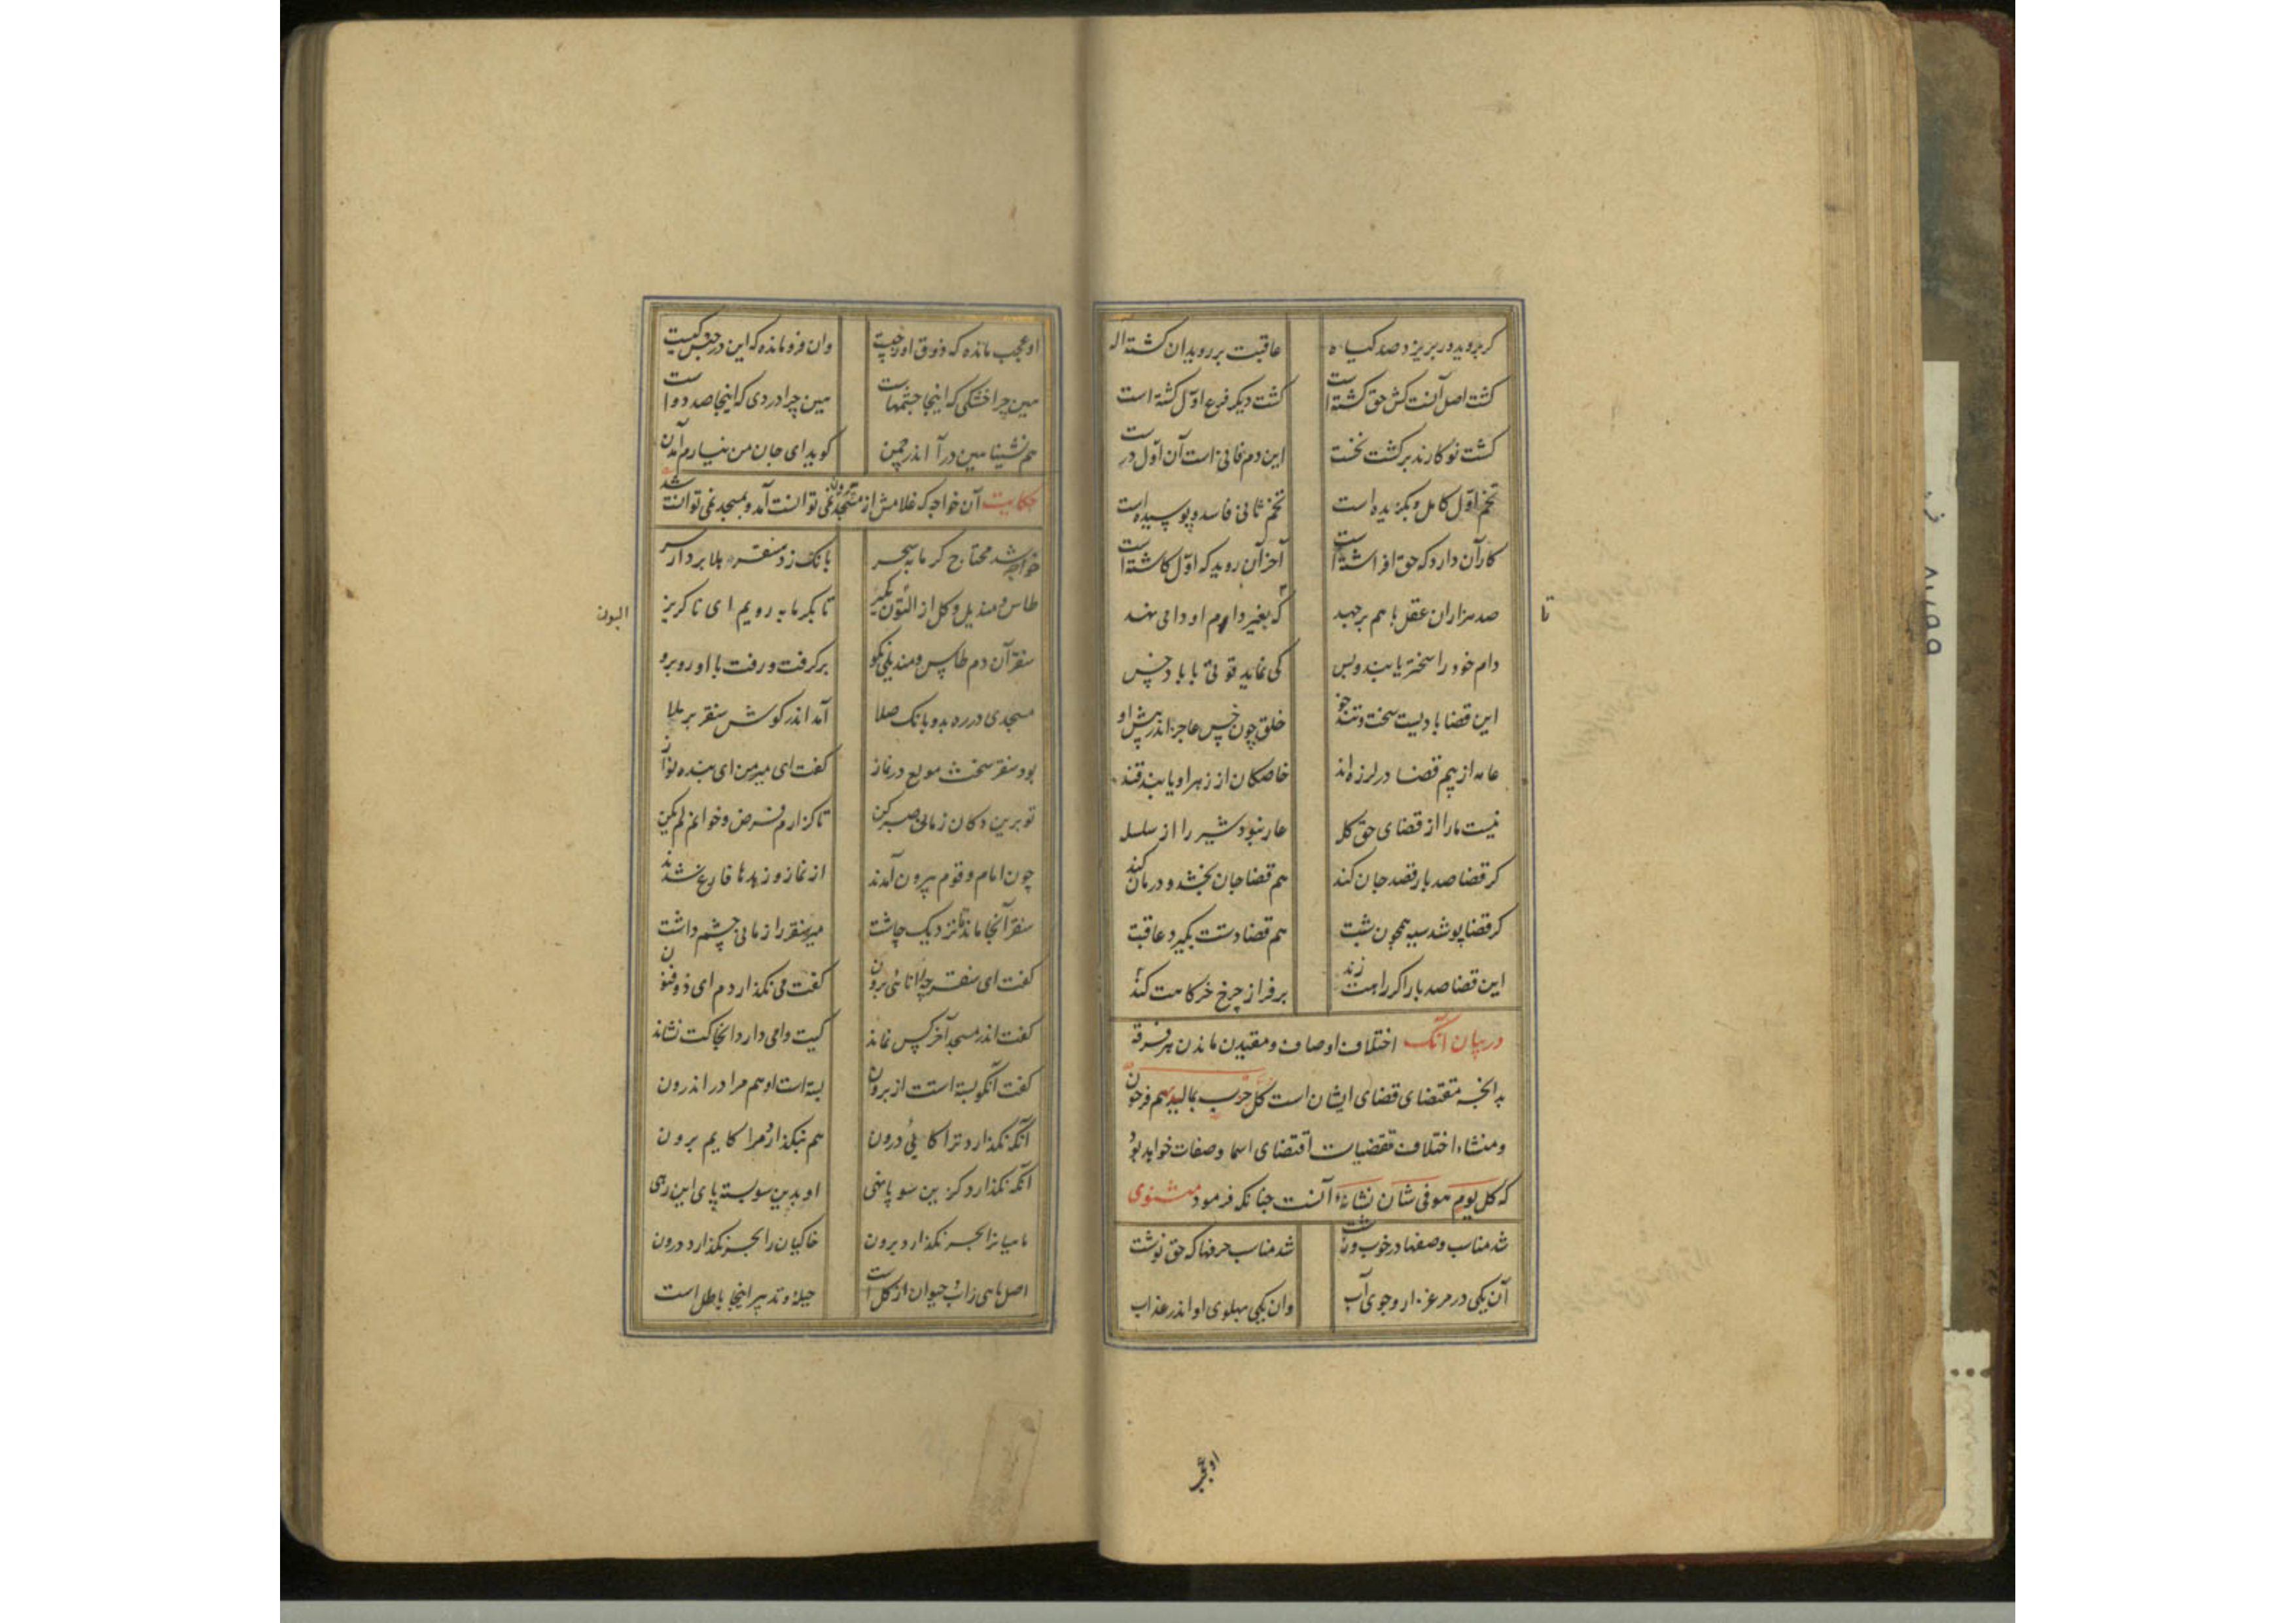 کر بروید ور بریزد صد کیاه عاقبت بر روید ان کشته اله
کشت اصل آنست کش حق کشته است کشت دیکر فرع اول کشته است
کشت نو کارند بر کشت نخست این دم فانی است آن اول درست
تخم اول کامل و بکزیده است تخم ثانی فاسد و پوسیده است
کار آن دارد که حق افراشته است آخر آن روید که اول کاشته است
صد هزاران عقل با هم بر جهند که بغیر دام او دامی نهند
تا
دام خود را سختر یابند و بس کی نماید قوتی با باد خس
این قضا بادیست سخت و تند خو خلق چون خس عاجز اندر پیش او
عامه از بیم قضا در لرزه اند خاصکان از زهر او یابند قند
نیست ما را از قضای حق کله عار نبود شیر را از سلسله
کر قضا صد بار قصد جان کند هم قضا جان بخشد و درمان کند
کر قضا پوشد سیه همچون شبت هم قضا دستت بکیرد عاقبت
این قضا صد بار اکر راهت زند بر فراز چرخ خرکاهت کند
در بیان آنک اختلاف اوصاف و مقیدن ماندن هر فرقه
بدانچه مقتضای قضای ایشان است کل حزب بما لدیهم فرحون
ومنشاء اختلاف مقتضیات اقتضای اسما و صفات خواهد بود
که کل یوم هو فی شان نشاءۀ آنست جنانکه فرمود مثنوی
شد مناسب وصفها در خوب و زشت شد مناسب حرفها که حق نوشت
آن یکی در مرغزار و جوی آب وان یکی پهلوی او اندر عذاب
او عجب
او عجب مانده که ذوق او ز چیست وان فرو مانده که این در حبس کیست
هین چرا خشکی که اینجا چشمهاست هین چرا دردی که اینجا صد دواست
هم نشینا هین در آ اندر چمن کوید ای جان من نیارم آمدن
حکایت آن خواجه که غلامش از مسجد بیرون نمی توانست آمد و بمسجد نمی توانست شد
خواجه شد محتاج کرمابه سحر بانک زد سنقر هلا بردار سر
طاس و مندیل و کل از التون بکیر تا بکرمابه رویم ای ناکریز
التون
سنقر آن دم طاس و مندیلی نکو بر کرفت و رفت با او رو برو
مسجدی در ره بد و بانک صلا آمد اندر کوش سنقر بر ملا
بود سنقر سخت مولع در نماز کفت ای میر من ای بنده نواز
تو برین دکان زمانی صبر کن تا کزارم فرض و خوانم لم یکن
چون امام و قوم بیرون آمدند از نماز و زبدها فارغ شدند
سنقر آنجا ماند تا نزدیک چاشت میر سنقر را زمانی چشم داشت
کفت ای سنقر چرا نائی برون کفت می نکذاردم ای ذو فنون
کفت اندر مسجد آخر کس نماند کیت وامی دارد انجا کت نشاند
کفت آنکو بسته است از برونت بسته است او هم مرا در اندرون
آنکه نکذارد ترا کائی درون هم نبکذارد مرا کایم برون
آنکه نکذارد کزین سو پا نهی او بدین سو بسته پای این رهی
ماهیانرا بحر نکذارد برون خاکیان را بحر نکذارد درون
اصل ماهی زاب و حیوان از کل است حیله و تدبیر اینجا باطل است